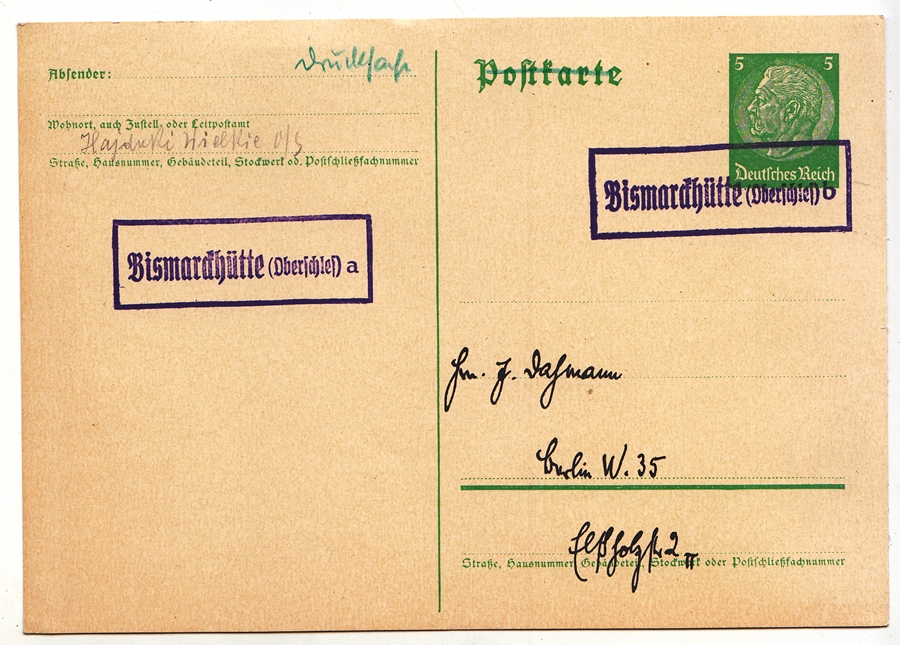 Drucksache
Absender:
Wohnort, auch Zustell- oder Leitpostamt
Hajduki Wielkie O/S
Straße, Hausnummer, Gebäudeteil, Stockwerk od. Postschließfachnummer
Bismarckhütte (Oberschles) a
Postkarte
5 5
Deutsches Reich
Bismarckhütte (Oberschles) b
Hrn. J. Dahmann
Berlin W. 35
Elßholzstr 2 II
Straße, Hausnummer, Gebäudeteil, Stockwerk oder Postschließfachnummer